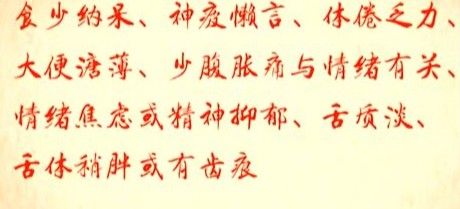 食少纳呆、神疫懒言、体倦乏力、
大便溏薄、少腹胀痛与情绪有关、
情绪焦虑或精神抑郁、舌质淡、
舌体稍胖或有齿痕